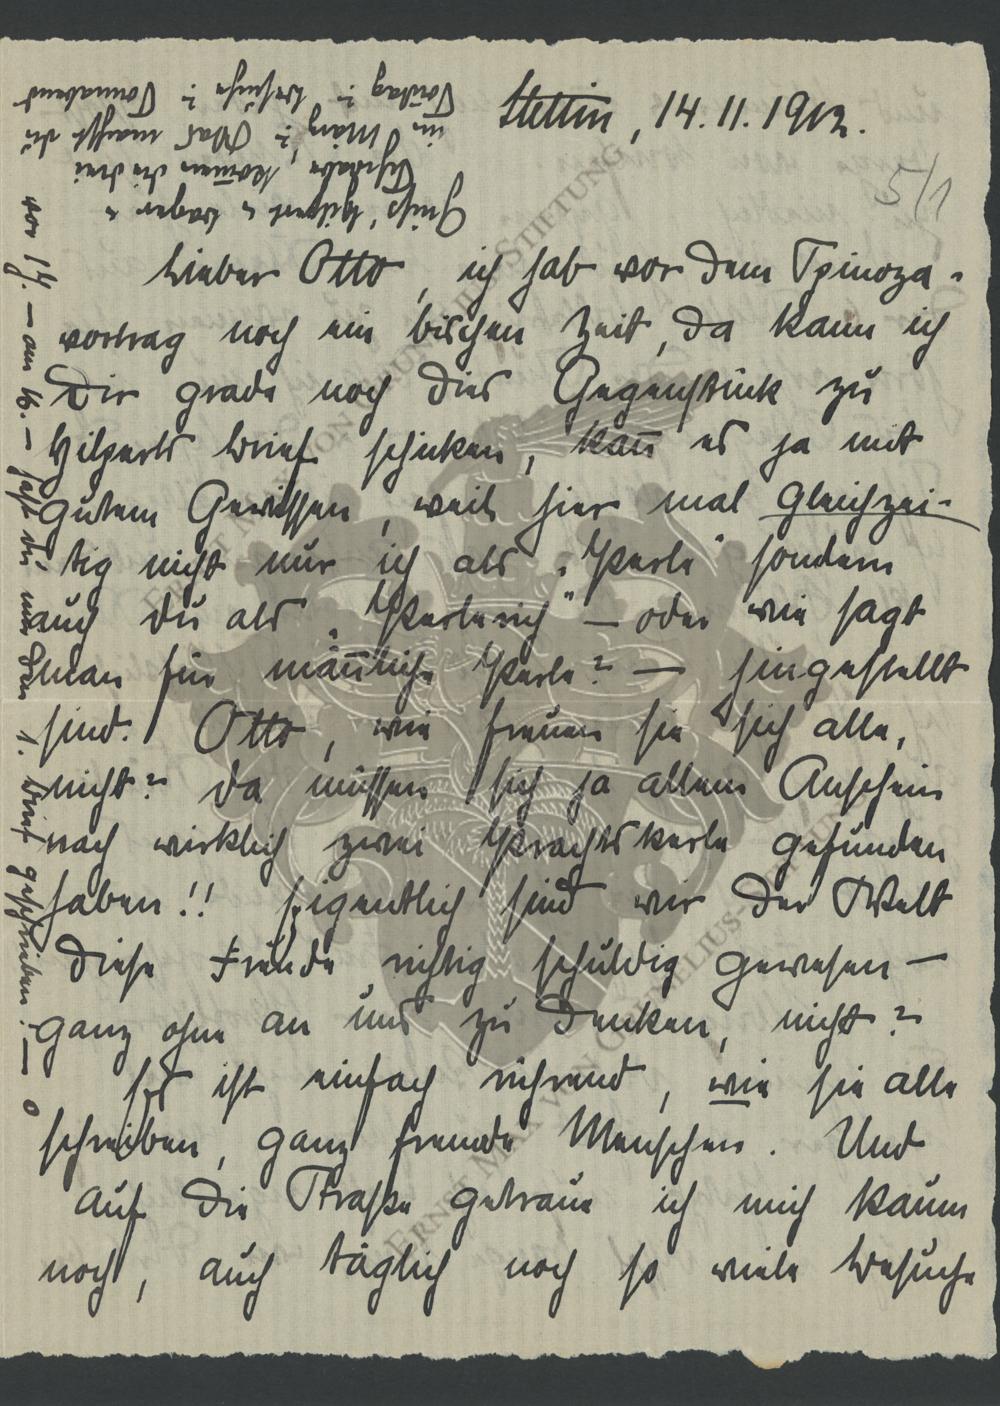 Stettin, 14.11.1912.
5/1
Lieber Otto, ich hab vor dem Spinoza-
vortrag noch ein bischen Zeit, da kann ich
Dir grade noch dies Gegenstück zu
Hilperts Brief schicken, kan̄ es ja mit
gutem Gewissen, weil hier mal gleichzei-
tig nicht nur ich als „Perle" sondern
auch du als „Perlerich" – oder wie sagt
man für män̄liche Perle? – hingestellt
sind. Otto, wie freuen sie sich alle,
nicht? da müssen sich ja allem Anschein
nach wirklich zwei Prachtskerle gefunden
haben!! Eigentlich sind wir der Welt
diese Freude richtig schuldig gewesen –
ganz ohne an uns zu denken, nicht?
Es ist einfach rührend, wie sie alle
schreiben, ganz fremde Menschen. Und
auf die Straße getraue ich mich kaum
noch, auch täglich noch so viele Besuche
vor 1 J. – am 16. – hast du mir den 1. Brief geschrieben. – O
Grüß' Hilpert u
kom̄en die drei
im März? Was machst du
Sonntag? Besuche? Sonnabend
ERNST VON STIFTUNG